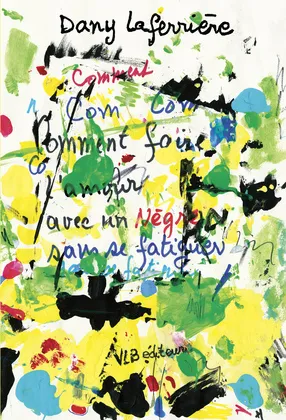 Dany Laferrière
Comment
Com Com
Comment faire
l'amour
avec un Nègre
sans se fatiguer
VLB éditeur